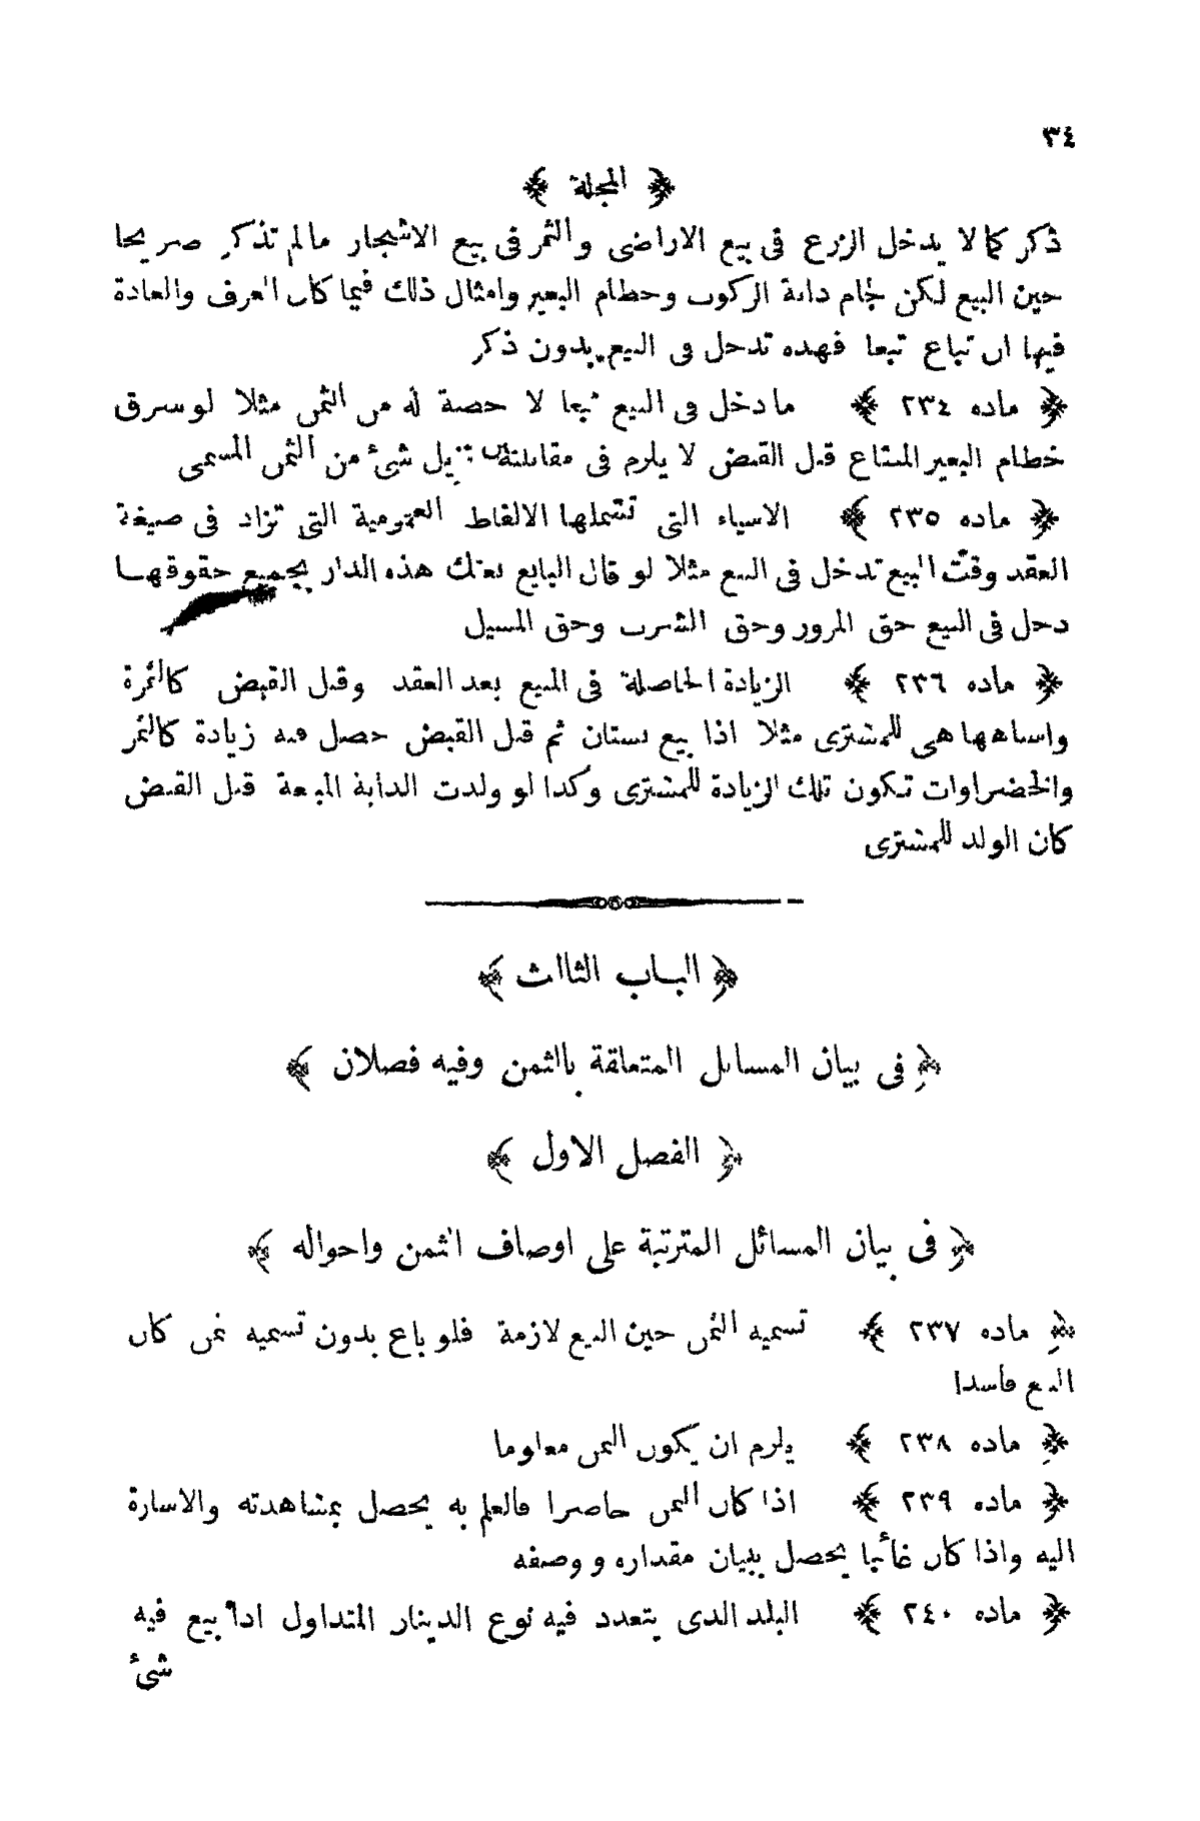 ٣٤
﴿ المجلة ﴾
ذكر كما لا يدخل الزرع فى بيع الاراضى والثمر فى بيع الاشجار مالم تذكر صريحا
حين البيع لكن لجام دابة الركوب وخطام البعير وامثال ذلك فيما كان العرف والعادة
فيها ان تباع تبعا فهذه تدخل فى البيع بدون ذكر
﴿ ماده ٢٣٤ ﴾ مادخل فى البيع تبعا لا حصة له من الثمن مثلا لو سرق
خطام البعير المبتاع قبل القبض لا يلزم فى مقابلته تنزيل شئ من الثمن المسمى
﴿ ماده ٢٣٥ ﴾ الاشياء التى تشملها الالفاظ العمومية التى تزاد فى صيغة
العقد وقت البيع تدخل فى البيع مثلا لو قال البايع بعتك هذه الدار بجميع حقوقها
دخل فى البيع حق المرور وحق الشرب وحق المسيل
﴿ ماده ٢٣٦ ﴾ الزيادة الحاصلة فى المبيع بعد العقد وقبل القبض كالثمرة
واشباهها هى للمشترى مثلا اذا بيع بستان ثم قبل القبض حصل فيه زيادة كالثمر
والخضراوات تكون تلك الزيادة للمشترى وكذا لو ولدت الدابة المبيعة قبل القبض
كان الولد للمشترى
﴿ الباب الثالث ﴾
﴿ فى بيان المسائل المتعلقة بالثمن وفيه فصلان ﴾
﴿ الفصل الاول ﴾
﴿ فى بيان المسائل المترتبة على اوصاف الثمن واحواله ﴾
﴿ ماده ٢٣٧ ﴾ تسميه الثمن حين البيع لازمة فلو باع بدون تسميه ثمن كان
البيع فاسدا
﴿ ماده ٢٣٨ ﴾ يلزم ان يكون الثمن معلوما
﴿ ماده ٢٣٩ ﴾ اذا كان الثمن حاضرا فالعلم به يحصل بمشاهدته والاشارة
اليه واذا كان غائبا يحصل ببيان مقداره و وصفه
﴿ ماده ٢٤٠ ﴾ البلد الذى يتعدد فيه نوع الدينار المتداول اذا بيع فيه
شئ